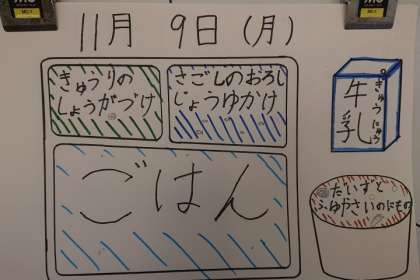 11月 9日(月)
きゅうりの
しょうがづけ
さごしのおろし
しょうゆかけ
ごはん
牛乳
ぎゅうにゅう
だいずと
ふゆやさいのにもの